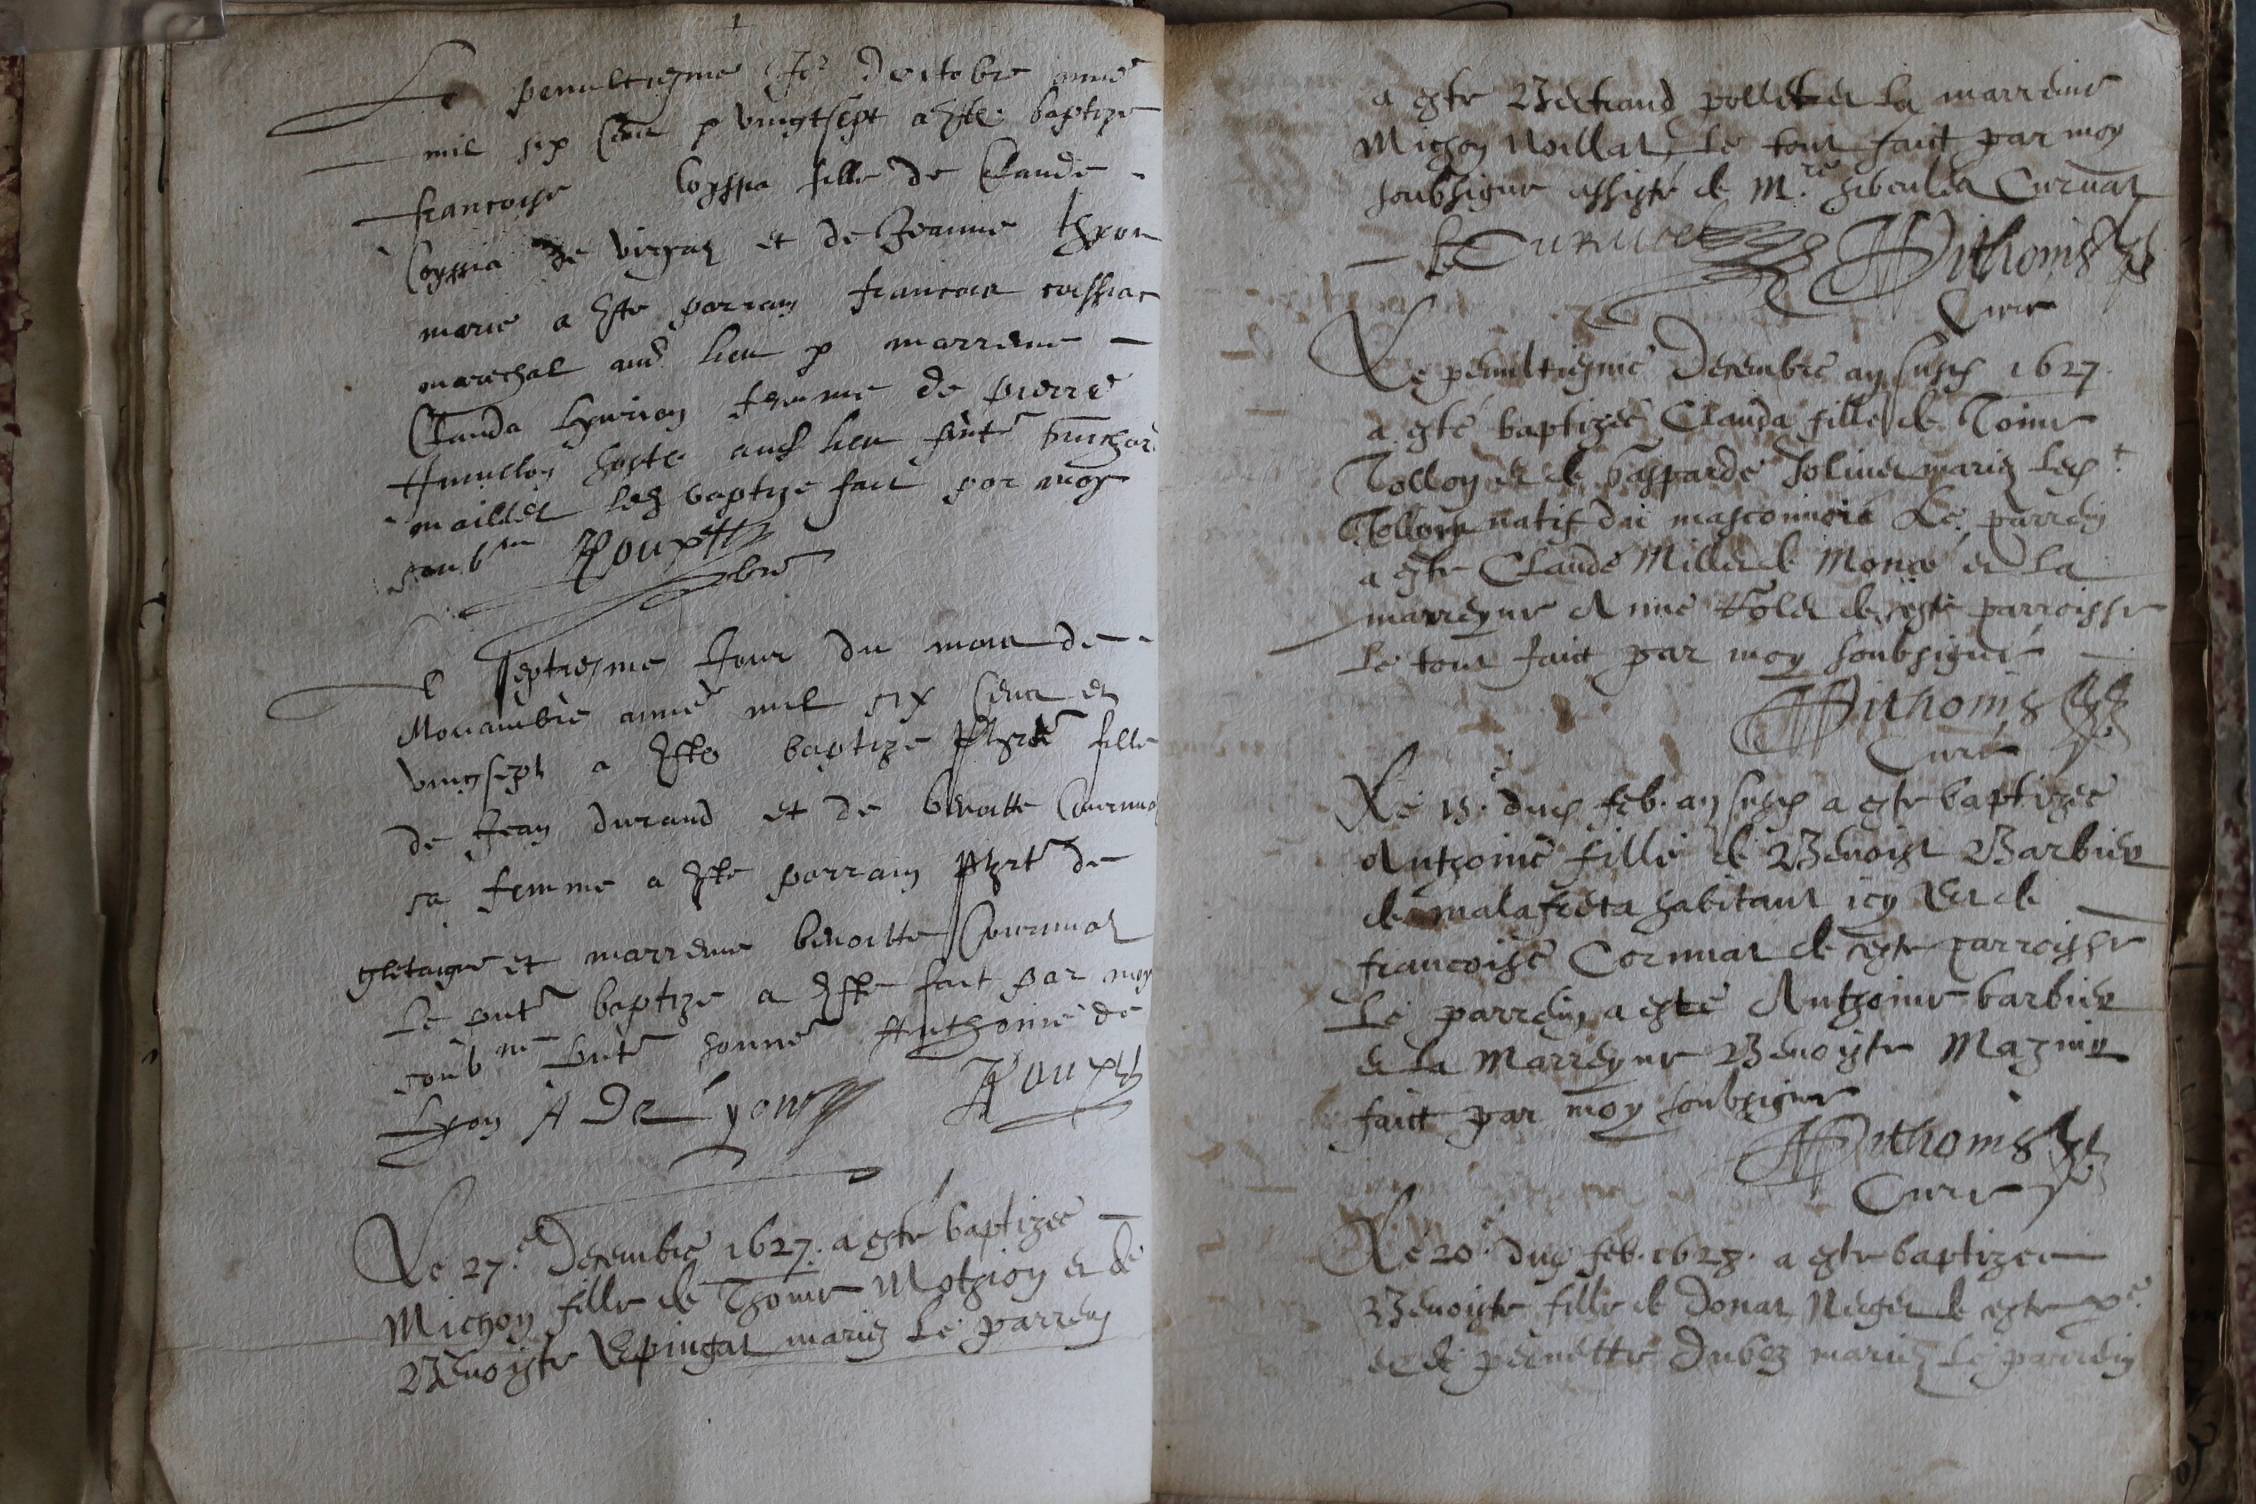 Le penultiesme Jor doctobre annee
mil six Cens et vingtsept a este baptize
francoise Coyssia fille de Claude
Coyssia de viriaz et de Jeanne
marie a este parrain francois coissiac
mareschal aud lieu et marreine
Clauda femme de pierre
hoste aud lieu
maillet led baptize fait par moy
soubne Rouph
pbre
Le septiesme Jour du mois de
Novambre annee mil six Cens et
vingsept a este baptize fille
de Jean durand et de benoitte Cournua
sa femme a este parrain de
et marreine benoitte Cournuat
Le baptize a este fait par moy
soubne honne Anthoine de
Lyon A De Lyon Rouph
Le 27.e Decembre 1627. a esté baptizee
Michon fille de Thoine Mothion et de
Benoiste Epingat mariez Le parrein
a este Bertrand pollet et La marreine
Michon Noillat, Le tout faict par moy
soubsigne assisté de M.re Curnat
Pithonis
Curé
Le penultiesme Decembre an susd 1627.
a esté baptizee Clauda fille de Toine
Tollon et de gasparde Jolinet mariez Led.t
Tollon natif du masconnois Le parrein
a este Claude Millet de et La
marreyne Anne de ceste parroisse
Le tout faict par moy soubsigné
Pithonis
Curé
Le 15.e dud feb. an susd a este baptizee
Anthoine fille de Benoist Barbier
de malafreta habitant icy Et de
francoise Cornuat de ceste parroisse
Le parrein a esté Anthoine barbier
et La Marreyne Benoyste Mazuir
faict par moy soubsigne
Pithonis
Curé
Le 20.e dud feb. 1628. a este baptizee
Benoiste fille de Donat de ceste p.e
et de pernette Dubez mariez Le parrein